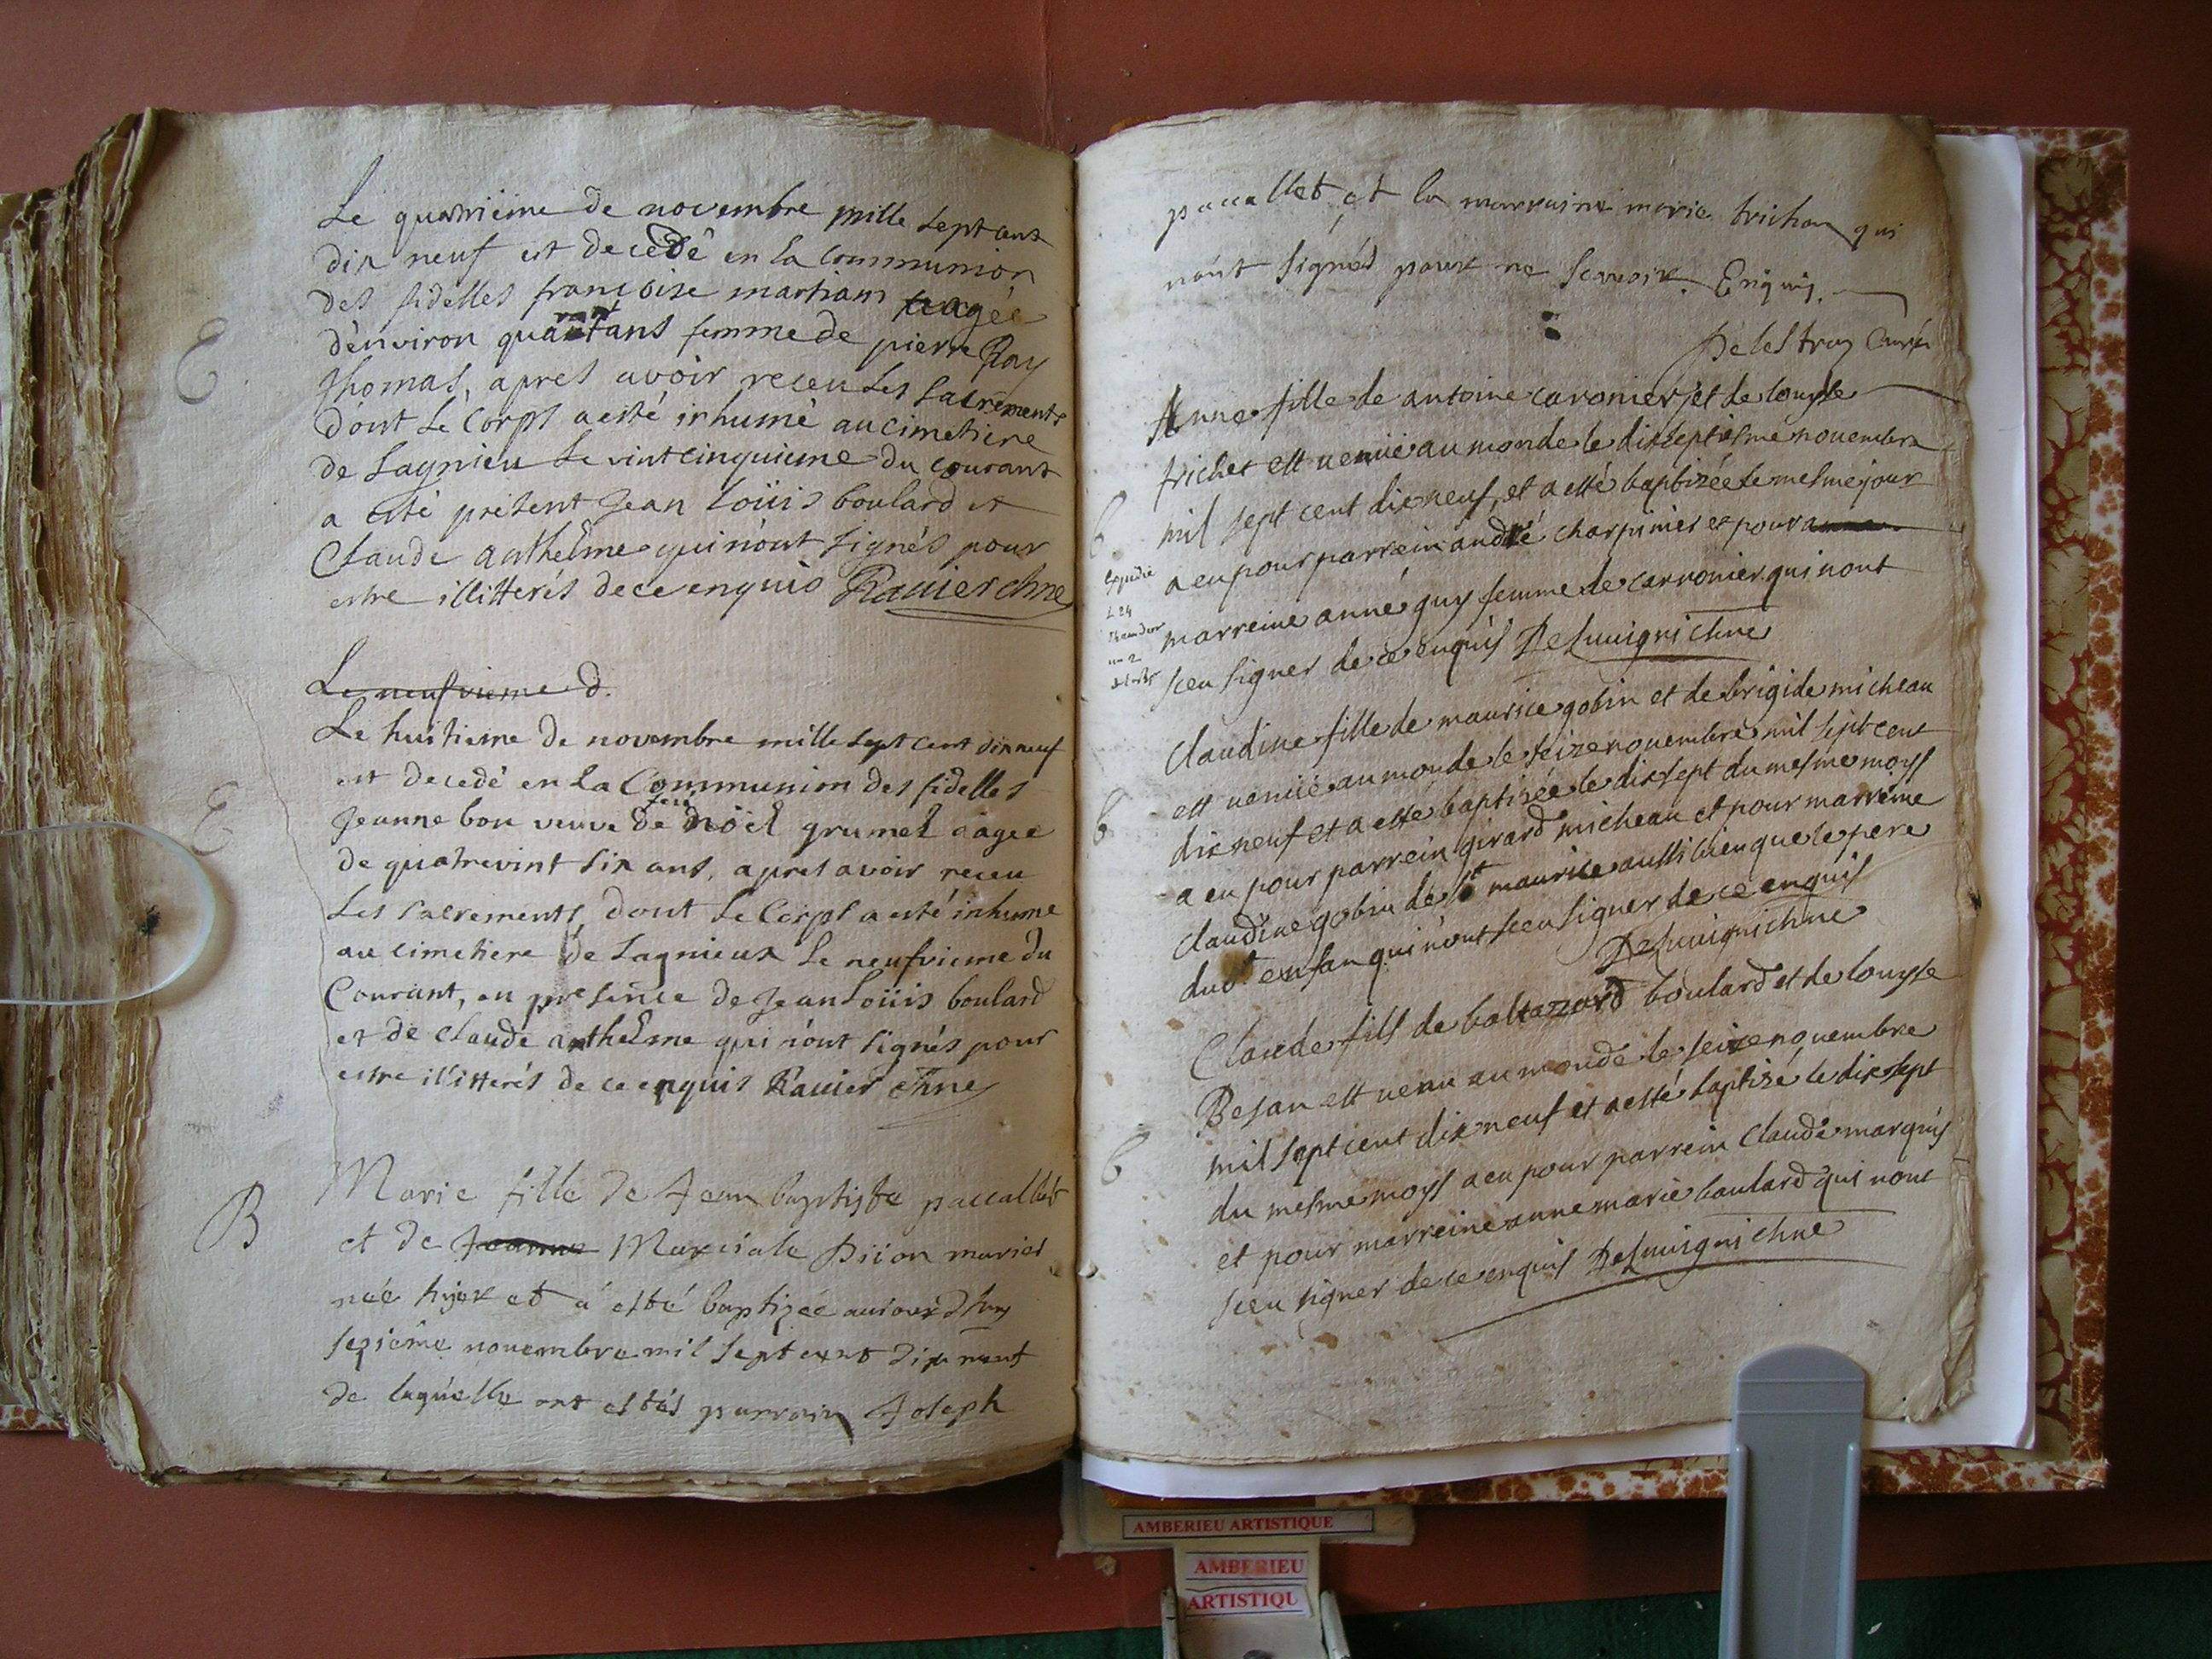 Le quatrieme de novembre mille septcent
dix neuf est decedé en la Communion
des fidelles françoise martian aagée
d'environ quarantans femme de pierre Ray
Thomas, apres avoir receu Les Sacrements
dont Le Corps a esté inhumé au cimetiere
de Lagnieu Le vintcinquieme du courant
a esté present Jean Loüis boulard et
Claude anthelme qui n'ont signés pour
estre illitterés de ce enquis Ravier chne
E
Le neufvieme d.
Le huitieme de novembre mille sept cent dix neuf
est decedé en La Communion des fidelles
Jeanne bon veuve de feu noël grumet aagee
de quatrevint six ans, apres avoir receu
Les sacrements dont Le Corps a esté inhumé
au cimetiere de Lagnieux Le neufvieme du
Courant, en presence de Jean Loüis boulard
et de Claude anthelme qui n'ont signés pour
estre illitterés de ce enquis Ravier chne
E
B
Marie fille de Jean baptiste paccallet
et de Jeanne Marciale Diion mariés
née hyer et a esté baptizée aujourd'huy
sezieme novembre mil sept cent dix neuf
de laquelle ont estés parrain Joseph
paccallet et la marraine marie trichon qui
n'ont signés pour ne scavoir. Enquis.
Delestraz Curé
Anne fille de antoine caronier et de louyse
trichet est venüe au monde le dixseptiesme novembre
mil sept cent dix neuf, et a esté baptizée le mesme jour
a eu pour parrein andré charpinier et pour
marreine anne guy femme de carronier qui n'ont
sceu signer de ce enquis Deluvigni chne
b
Expedie
L 24
Claudine fille de maurice gobin et de brigide micheau
est venüe au monde le seize novembre mil sept cent
dix neuf et a esté baptisée le dixsept du mesme moys
a eu pour parrein girard micheau et pour marreine
claudine gobin de st maurice aussi bien que le pere
dudt enfan qui n'ont sceu signer de ce enquis
Deluvigni chne
b
Claude fils de baltazzard boulard et de louyse
Besan est venu au monde le seize novembre
mil sept cent dix neuf et a esté baptisé le dixsept
du mesme moys a eu pour parrein Claude marquis
et pour marreine anne marie boulard qui n'ont
sceu signer de ce enquis Deluvigni chne
b
AMBERIEU ARTISTIQUE
AMBERIEU
ARTISTIQU